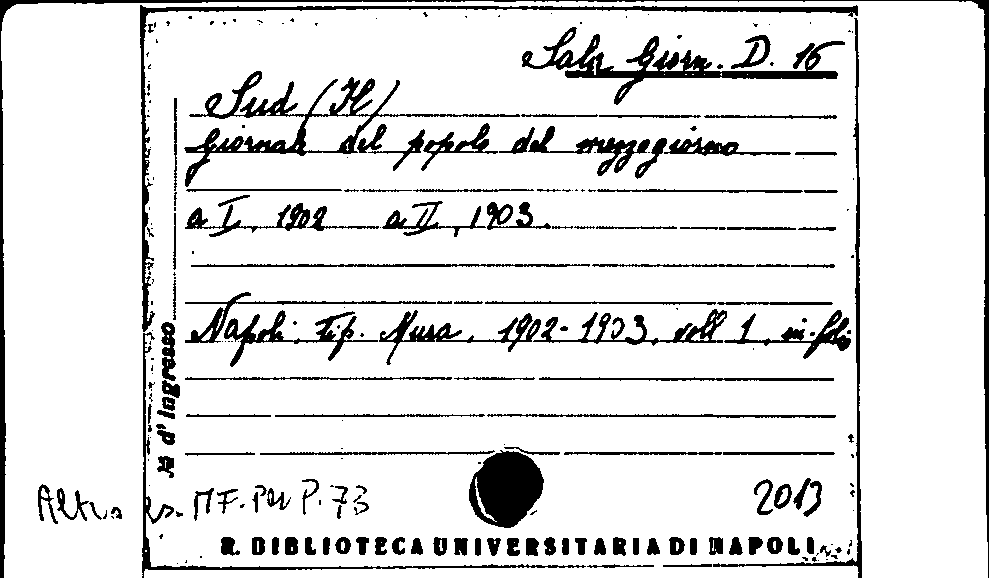 Sala Giorn. D. 16
Sud (Il)
Giornale del popolo del mezzogiorno
a I, 1902 a II, 1903.
Napoli, tip. Mura, 1902-1903, voll 1, in-folio
№ d'Ingresso
Altro es. MF. Per P. 73
2013
R. BIBLIOTECA UNIVERSITARIA DI NAPOLI